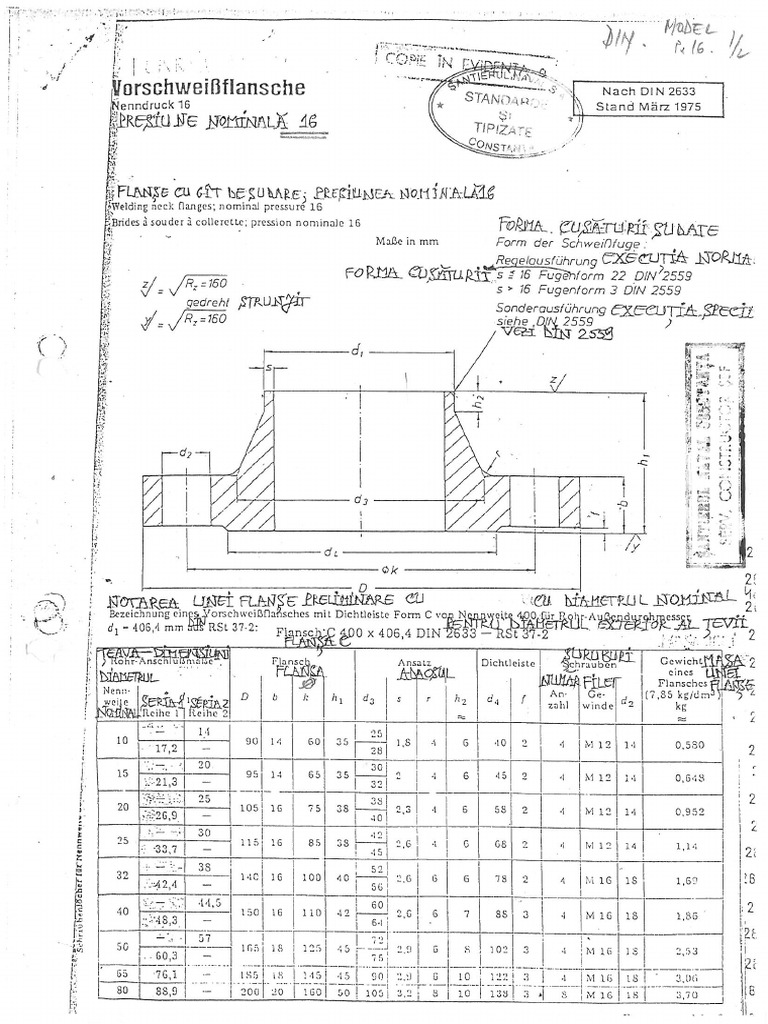 DIN. MODEL
Pn 16. 1/2
COPIE IN EVIDENTA
SANTIERUL NAVAL
STANDARDE
SI
TIPIZATE
CONSTANTA
Vorschweißflansche
Nenndruck 16
PRESIUNE NOMINALĂ 16
Nach DIN 2633
Stand März 1975
FLANȘE CU GÎT DE SUDARE; PRESIUNEA NOMINALĂ 16
Welding neck flanges; nominal pressure 16
Brides à souder à collerette; pression nominale 16
Maße in mm
FORMA CUSĂTURII SUDATE
Form der Schweißfuge:
Regelausführung EXECUȚIA NORMA
FORMA CUSĂTURII
s ≤ 16 Fugenform 22 DIN 2559
s > 16 Fugenform 3 DIN 2559
Sonderausführung EXECUȚIA SPECI
siehe DIN 2559
VEZI DIN 2559
z/ = √ Rz=160
gedreht STRUNJIT
y/ = √ Rz=160
d1
s
z/
h2
h1
d2
r
d3
b
f
d4
y/
⌀k
D
ȘANTIERUL NAVAL CONSTANȚA
SERV. CONSTRUCTOR ȘEF
NOTAREA UNEI FLANȘE PRELIMINARE CU CU DIAMETRUL NOMINAL
Bezeichnung eines Vorschweißflansches mit Dichtleiste Form C von Nennweite 400 für Rohr-Außendurchmesser
DIN PENTRU DIAMETRUL EXTERIOR AL ȚEVII
d1 = 406,4 mm aus RSt 37-2: Flansch C 400 x 406,4 DIN 2633 — RSt 37-2
FLANȘA C
ȚEAVA-DIMENSIUNI FLANȘA ADAOSUL ȘURUBURI MASA UNEI FLANȘE
Rohr-Anschlußmaße Flansch Ansatz Dichtleiste Schrauben Gewicht eines Flansches (7,85 kg/dm³) kg ≈
DIAMETRUL NOMINAL SERIA 1 SERIA 2 NUMĂR FILET
Nennweite Reihe 1 Reihe 2 D b k h1 d3 s r h2 ≈ d4 f Anzahl Gewinde d2
10 — 14 90 14 60 35 25 1,8 4 6 40 2 4 M 12 14 0,580
17,2 — 28
15 — 20 95 14 65 35 30 2 4 6 45 2 4 M 12 14 0,648
21,3 — 32
20 25 105 16 75 38 38 2,3 4 6 58 2 4 M 12 14 0,952
26,9 — 40
25 — 30 115 16 85 38 42 2,6 4 6 68 2 4 M 12 14 1,14
33,7 — 45
32 — 38 140 16 100 40 52 2,6 6 6 78 2 4 M 16 18 1,69
42,4 — 56
40 44,5 150 16 110 42 60 2,6 6 7 88 3 4 M 16 18 1,86
48,3 — 64
50 — 57 165 18 125 45 72 2,9 6 8 102 3 4 M 16 18 2,53
60,3 — 75
65 76,1 — 185 18 145 45 90 2,9 6 10 122 3 4 M 16 18 3,06
80 88,9 — 200 20 160 50 105 3,2 8 10 138 3 8 M 16 18 3,70
Schraubenlöcher für Nennweite